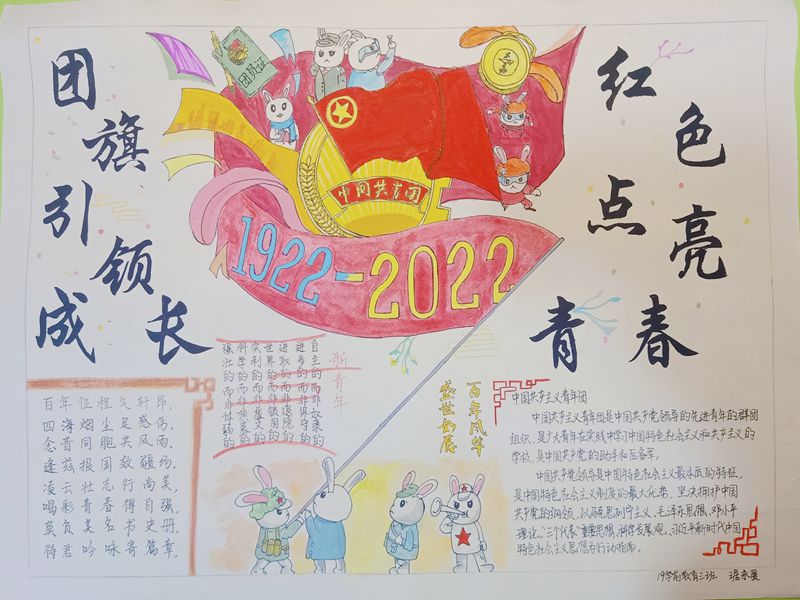 团旗引领成长
红色点亮青春
团员证
中国共青团
1922-2022
新青年
自主的而非奴隶的
进步的而非保守的
进取的而非退隐的
世界的而非锁国的
实利的而非虚文的
科学的而非想象的
百年风华
盛世
百年征程气轩昂，
四海烟尘足感伤。
念昔同胞共风雨，
逢兹报国效疆场。
凌云壮志行尚美，
唱彩青春得自强。
莫负美名书史册，
待君吟咏寄篇章。
中国共产主义青年团
中国共产主义青年团是中国共产党领导的先进青年的群团
组织，是广大青年在实践中学习中国特色社会主义和共产主义的
学校，是中国共产党的助手和后备军。
中国共产党领导是中国特色社会主义最本质的特征，
是中国特色社会主义制度的最大优势。坚决拥护中国
共产党的纲领，以马克思列宁主义、毛泽东思想、邓小平
理论、“三个代表”重要思想、科学发展观、习近平新时代中国
特色社会主义思想为行动指南。
19学前教育三班